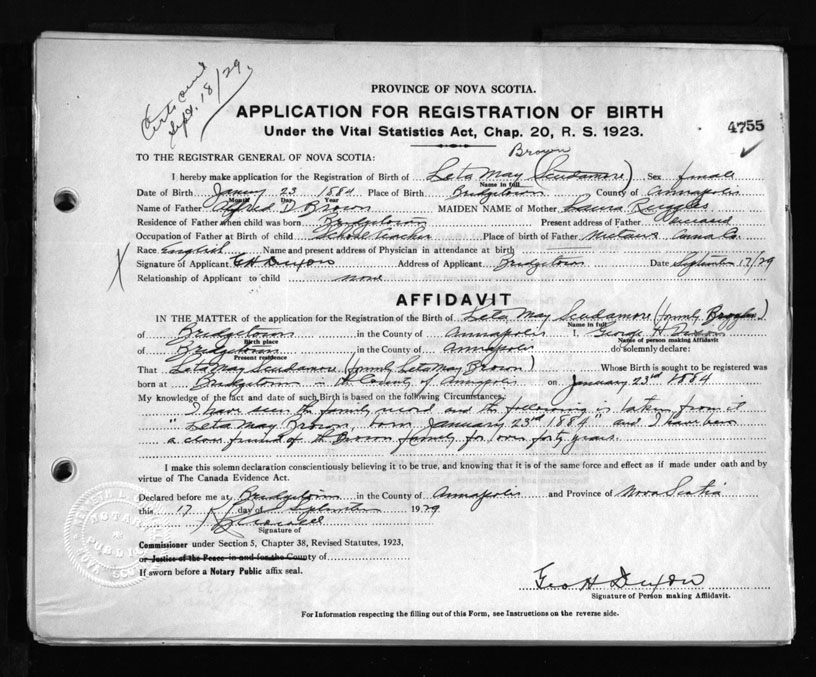 Sept. 18/29.
PROVINCE OF NOVA SCOTIA.
APPLICATION FOR REGISTRATION OF BIRTH
Under the Vital Statistics Act, Chap. 20, R. S. 1923.
4755
Brown
TO THE REGISTRAR GENERAL OF NOVA SCOTIA:
I hereby make application for the Registration of Birth of Leta May (Scudamore) Sex female
Name in full
Date of Birth January 23 1884 Place of Birth Bridgetown County of Annapolis
Month Day Year
Name of Father Alfred D Brown MAIDEN NAME of Mother Laura Ruggles
Residence of Father when child was born Bridgetown Present address of Father
Occupation of Father at Birth of child School Teacher Place of birth of Father Nictaux Anna Co.
Race English Name and present address of Physician in attendance at birth
Signature of Applicant G H Dixon Address of Applicant Bridgetown Date September 17/29
Relationship of Applicant to child none
AFFIDAVIT
IN THE MATTER of the application for the Registration of the Birth of Leta May Scudamore (formerly
Name in full
of Bridgetown in the County of Annapolis I, George H Dixon
Birth place Name of person making Affidavit
of Bridgetown in the County of Annapolis do solemnly declare:
Present residence
That Leta May Scudamore (formerly Leta May Brown) Whose Birth is sought to be registered was
born at Bridgetown in the County of Annapolis on January 23rd 1884
My knowledge of the fact and date of such Birth is based on the following Circumstances:
I have seen the family record and the following is taken from it
"Leta May Brown, born January 23rd 1884" and I have been
a close friend of the Brown family for over forty years.
I make this solemn declaration conscientiously believing it to be true, and knowing that it is of the same force and effect as if made under oath and by
virtue of The Canada Evidence Act.
Declared before me at Bridgetown in the County of Annapolis and Province of Nova Scotia
this 17 day of September 1929
Signature of
Commissioner under Section 5, Chapter 38, Revised Statutes, 1923,
or Justice of the Peace in and for the County of
If sworn before a Notary Public affix seal.
Geo H Dixon
Signature of Person making Affidavit.
For Information respecting the filling out of this Form, see Instructions on the reverse side.